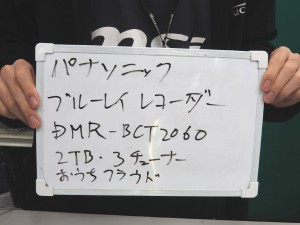 パナソニック
ブルーレイ レコーダー
DMR-BCT2060
2TB・3チューナー
おうちクラウド